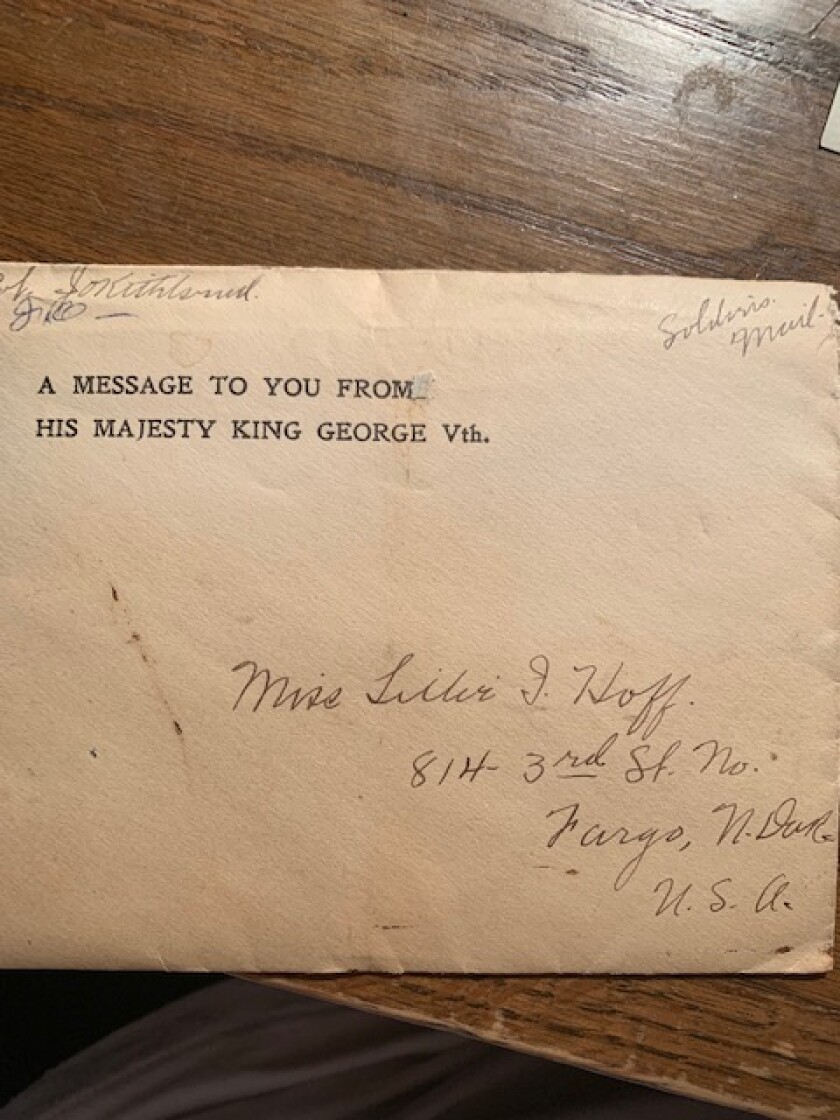 Soldiers.
Mail.
A MESSAGE TO YOU FROM
HIS MAJESTY KING GEORGE Vth.
Miss Lillie I. Hoff.
814- 3rd St. No.
Fargo, N. Dak.
U. S. A.